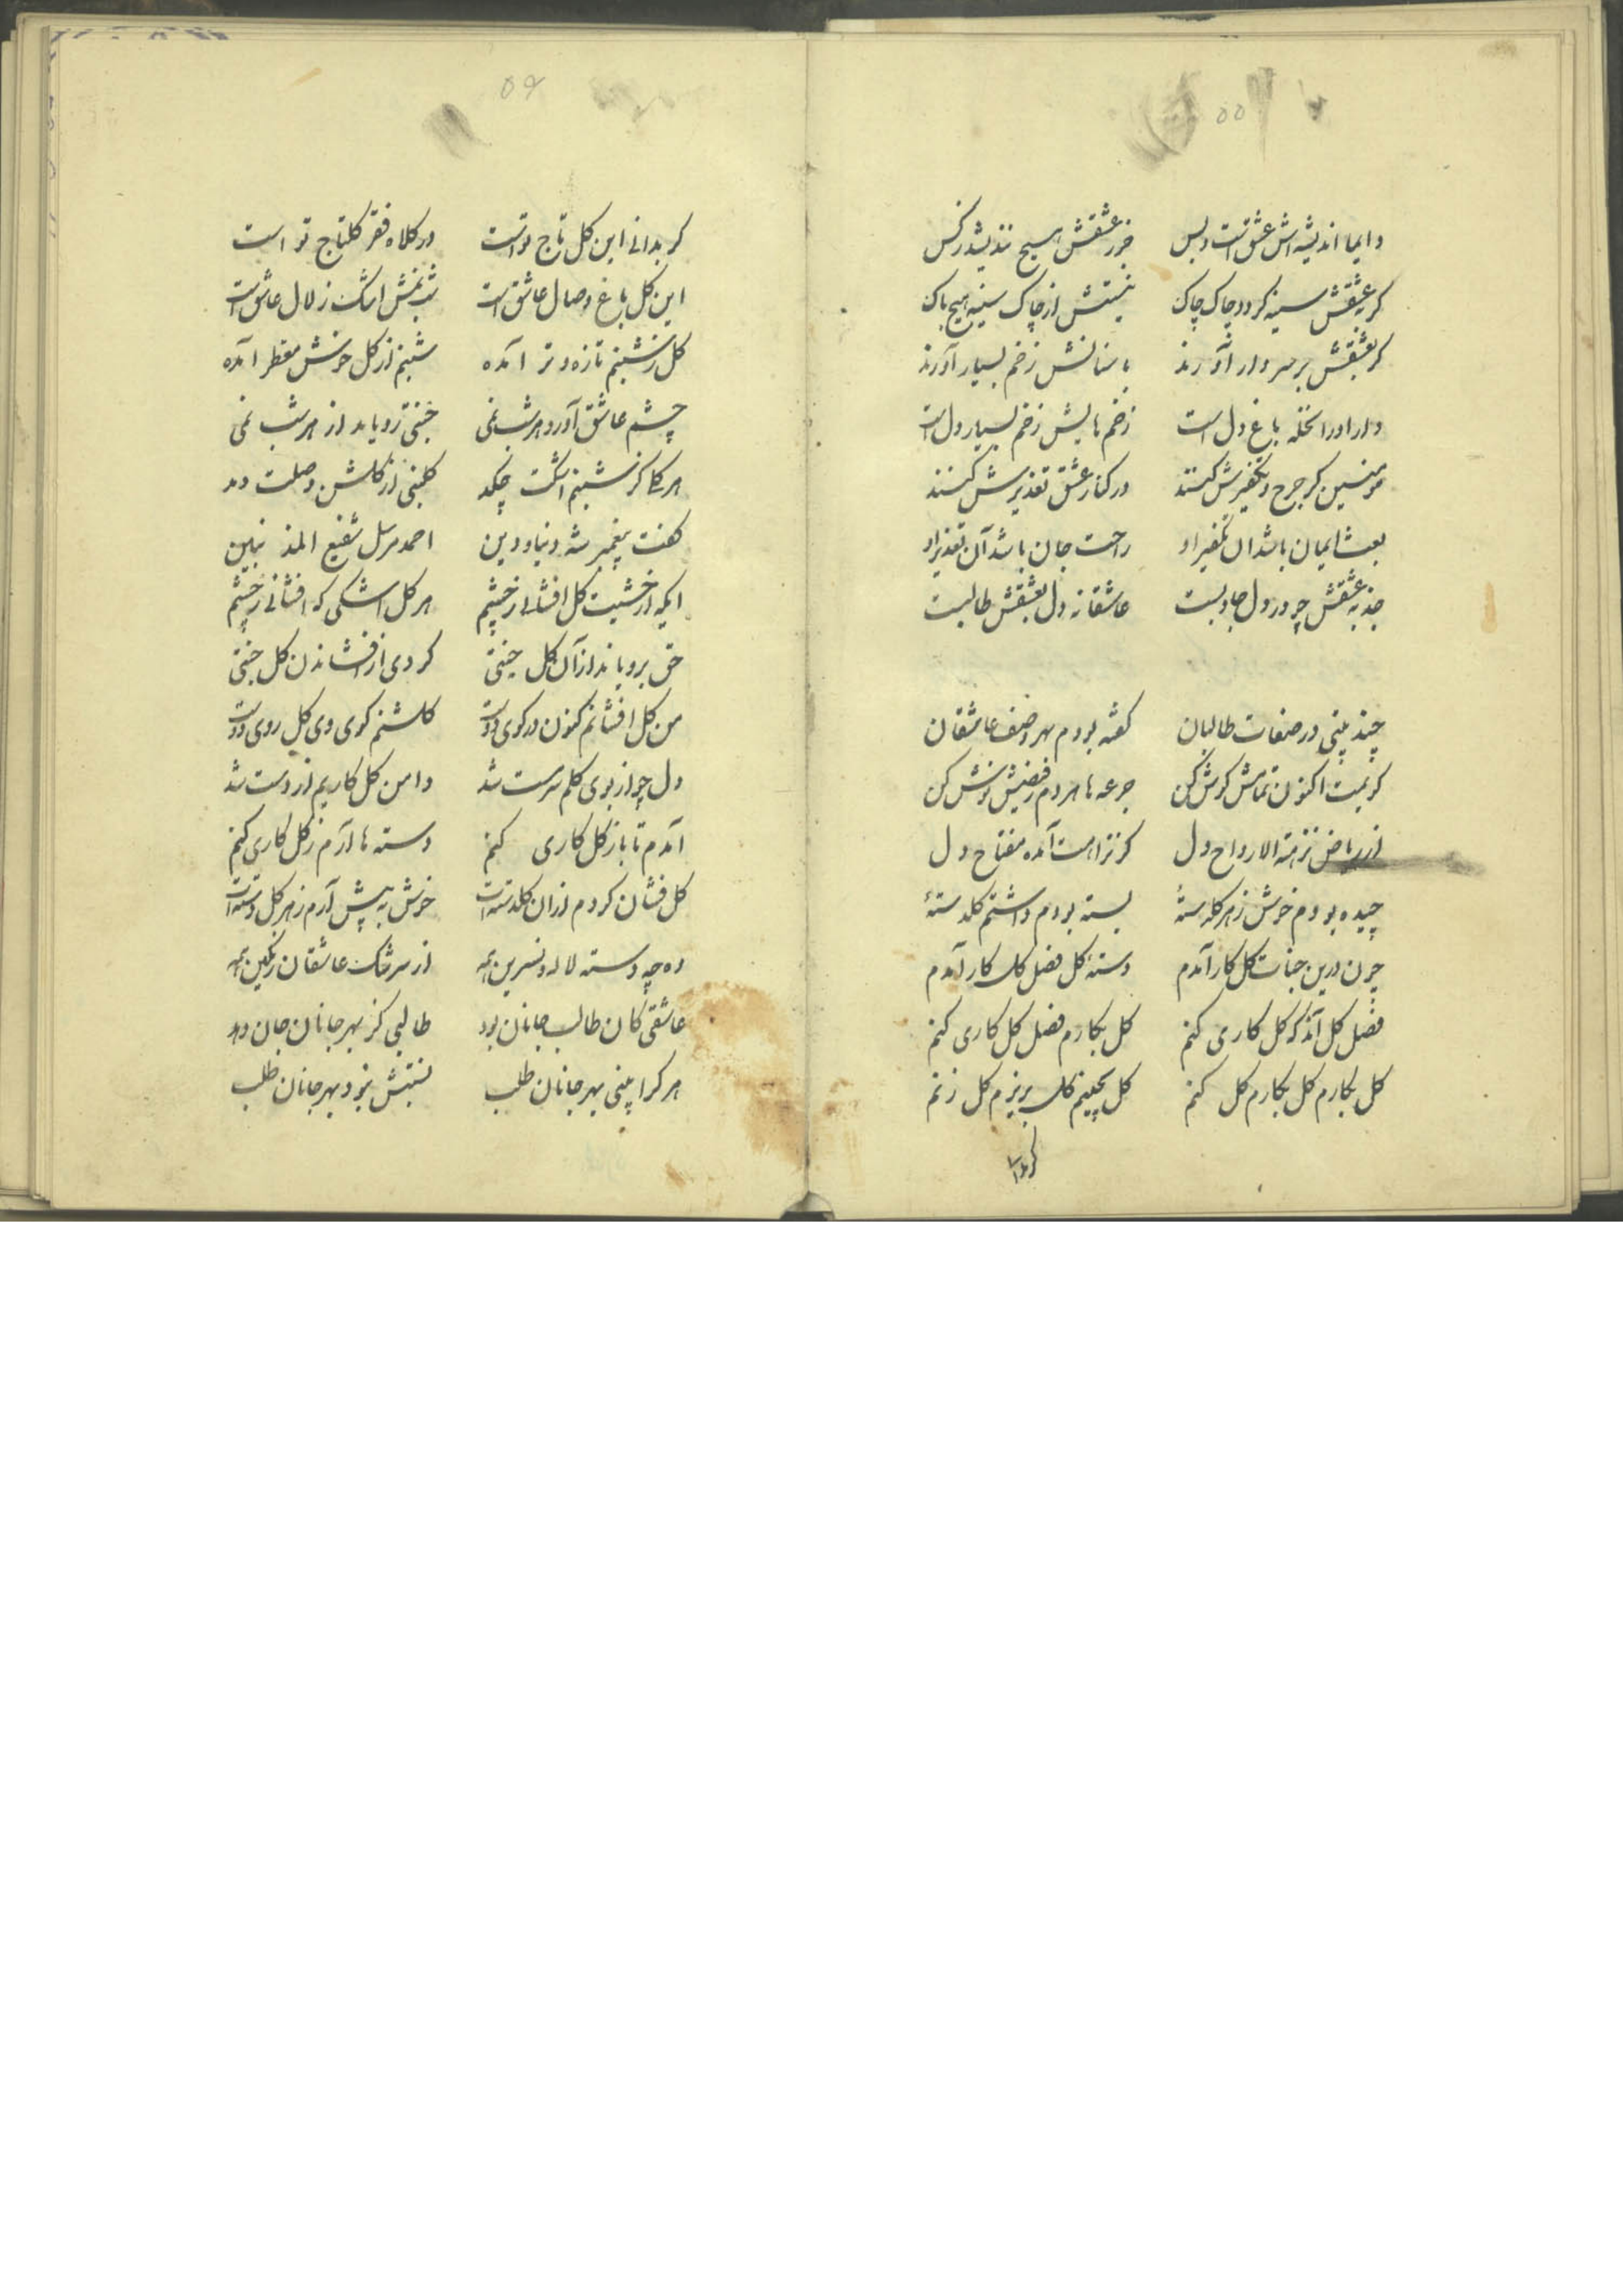 ۵۵
دایما اندیشه اش عشق است و بس جز عشقش هیچ نندیشد ز کس
کر عشقش سینه کردد چاک چاک نیستش از چاک سینه هیچ باک
کر بعشقش بر سر دار آورند با سنانش زخم بسیار آورند
دار او را نخله باغ دل است زخم هایش زخم بسیار دل است
مومنین کر جرح و تکفیرش کنند در کنار عشق تعذیرش کنند
بعث ایمان باشد آن تکفیر او راحت جان باشد آن تعذیر او
جذبه عشقش چو در دل جاذبست عاشقانه دل بعشقش طالبست
چند بیتی در صفات طالبان کفته بودم بهر وصف عاشقان
کویمت اکنون تمامش کوش کن جرعه ها هر دم ز فیضش نوش کن
از ریاض نزهة الارواح دل کز نزاهت آمده مفتاح دل
چیده بودم خوش ز هر کلرسته بسته بودم داشتم کلدسته
چون درین جنات کل کار آمدم دسته کل فصل کل کار آمدم
فصل کل آمد که کل کاری کنم کل بکارم فصل کل کاری کنم
کل بکارم کل بکارم کل کنم کل بچینم کل بریزم کل زنم
کر بدانی
۵۶
کر بدانی این کل تاج تو است در کلاه فقر کلتاج تو است
این کل باغ وصال عاشق است شبنمش اشک زلال عاشق است
کل ز شبنم تازه و تر آمده شبنم از کل خوش معطر آمده
چشم عاشق آورد هر شب نمی جنتی رویاند از هر شب نمی
هر کلی کز شبنم اشکت چکد کلبنی از کلشن وصلت دمد
کفت پیغمبر شه دنیا و دین احمد مرسل شفیع المذنبین
ایکه از خشیت کل افشانی ز چشم هر کل اشکی که افشانی ز چشم
حق برویاند از آن کل جنتی کردی از افشاندن کل جنتی
من کل افشانم کنون در کوی دوست کلشنم کوی وی کل روی دوست
دل چو از بوی کلم سرمست شد دامن کل کاریم از دست شد
آمدم تا باز کل کاری کنم دسته ها آرم ز کل کاری کنم
کل فشان کردم از آن کلدسته است خوش به پیش آرم ز هر کل دسته است
وه چه دسته لاله و نسرین همه از سرشک عاشقان رنکین همه
عاشقی کان طالب جانان بود طالبی کز بهر جانان جان دهد
هر کرا بینی بهر جانان طلب نیستش نبود بهر جانان طلب